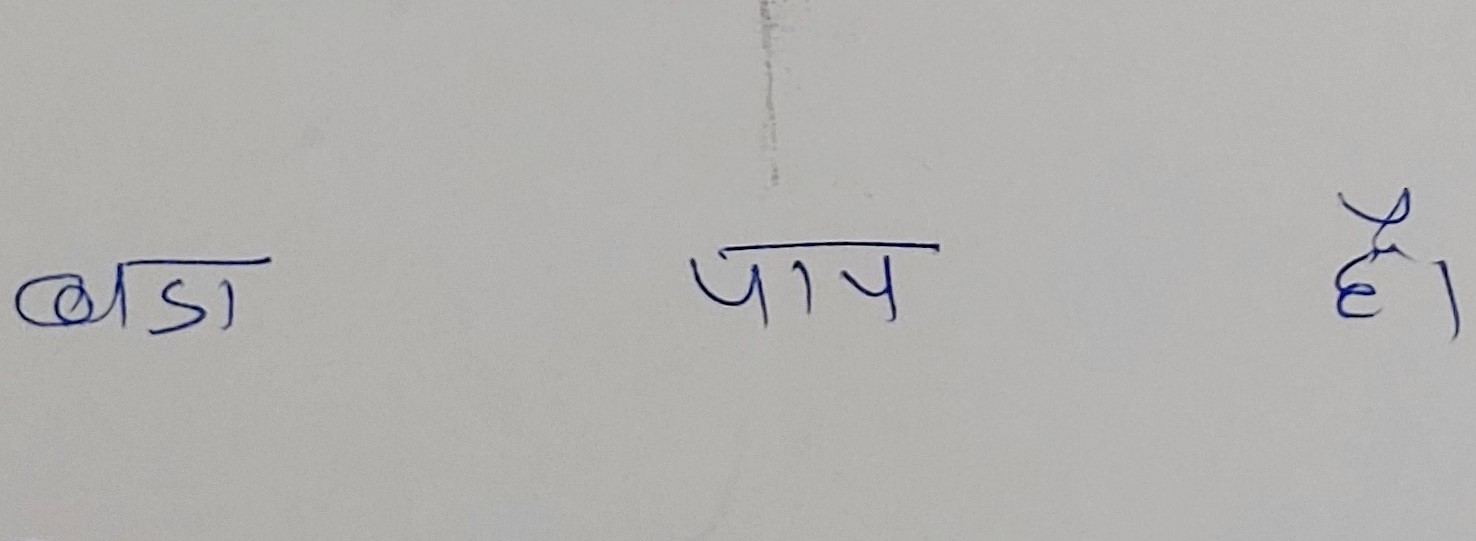 बडा पाप है।